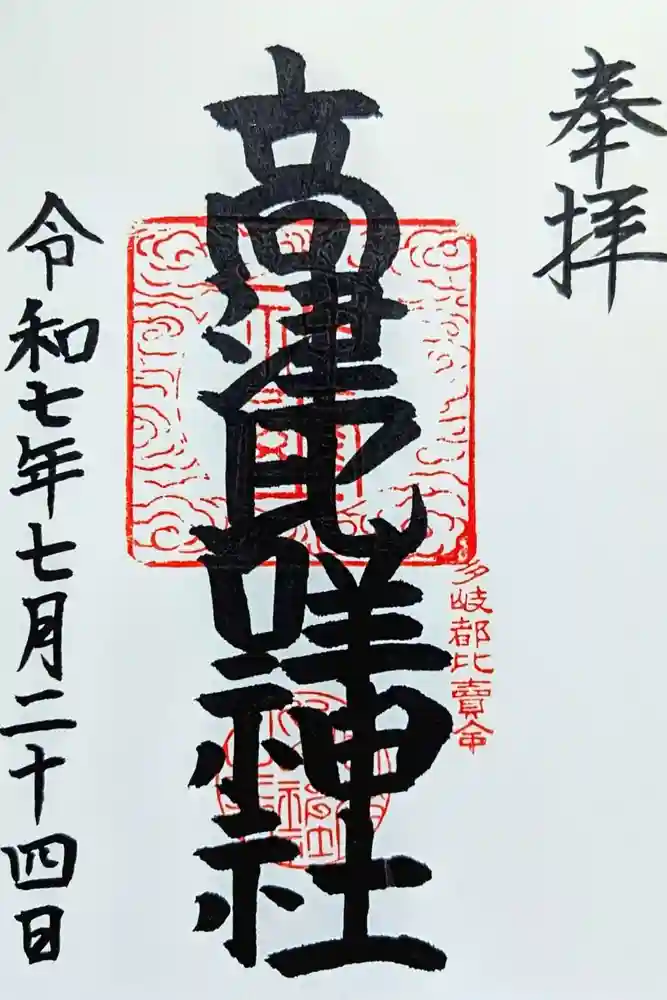 奉拝
多岐都比賣命
高津比咩神社
令和七年七月二十四日